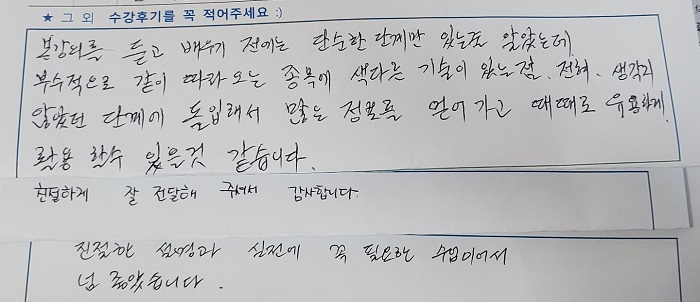 ★ 그 외 수강후기를 꼭 적어주세요 :)
본강의를 듣고 배우기 전에는 단순한 단계만 있는줄 알았는데
부수적으로 같이 따라오는 종목에 색다른 기술이 있는점, 전혀, 생각지
않았던 단계에 돌입해서 많은 정보를 얻어가고 때때로 유용하게
활용 할수 있을것 같습니다.
친절하게 잘 전달해 주셔서 감사합니다.
친절한 설명과 실전에 꼭 필요한 수업이어서
넘 좋았습니다.